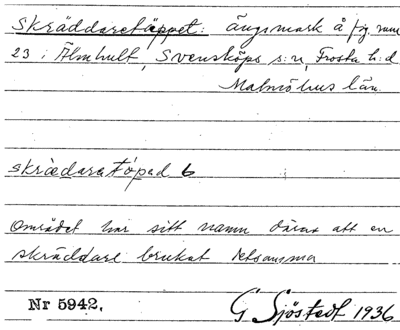 Skräddaretäppet: ängsmark å fig. num
23 i Älmhult, Svensköps s:n, Frosta h:d
Malmöhus län.
skrædaratópad 6
Området har sitt namn därav att en
skräddare brukat detsamma
Nr 5942.
G Sjöstedt 1936